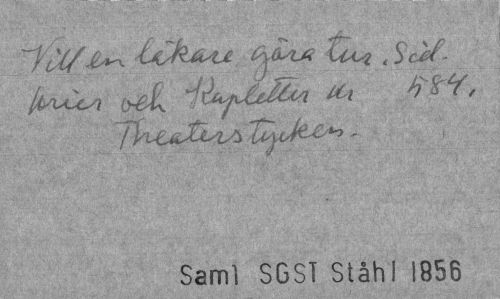 Vill en läkare göra tur. Sid.
Arier och Kupletter ur 584.
Theaterstycken.
Saml SGST Ståhl 1856